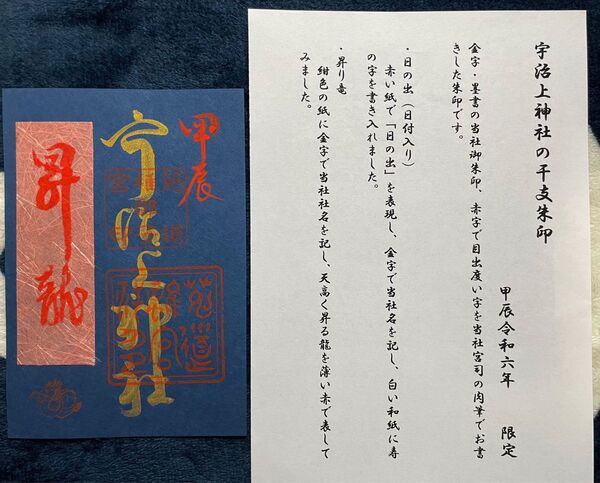 甲辰
宇治上神社
昇龍
宇治上神社の干支朱印
甲辰令和六年　限定
金字・墨書の当社御朱印、赤字で目出度い字を当社宮司の肉筆でお書
きした朱印です。
・日の出（日付入り）
赤い紙で「日の出」を表現し、金字で当社名を記し、白い和紙に寿
の字を書き入れました。
・昇り竜
紺色の紙に金字で当社社名を記し、天高く昇る龍を薄い赤で表して
みました。